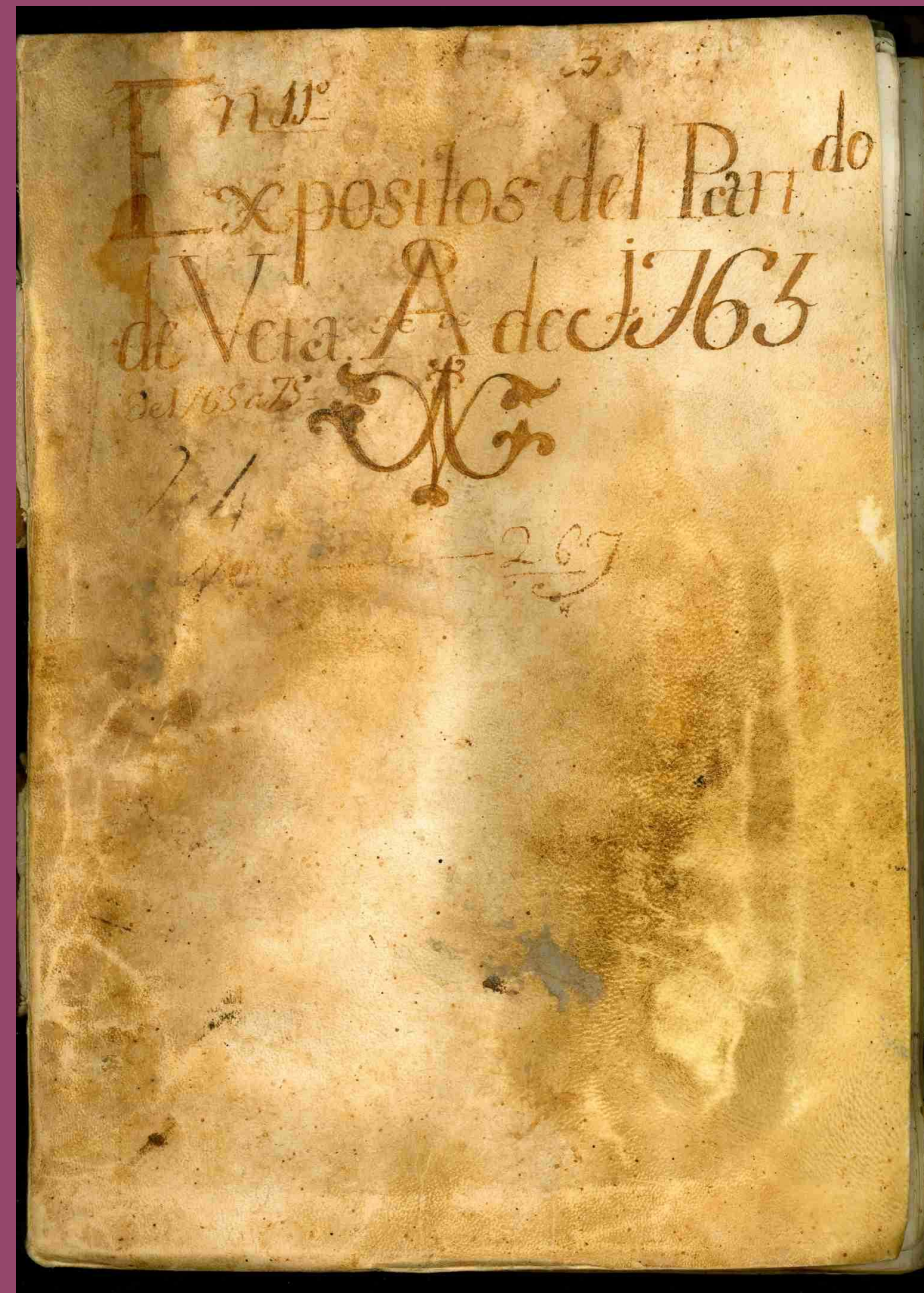 n 11º
Expositos del Part.do
de Vera A de 1765
De 1765 a 75
267